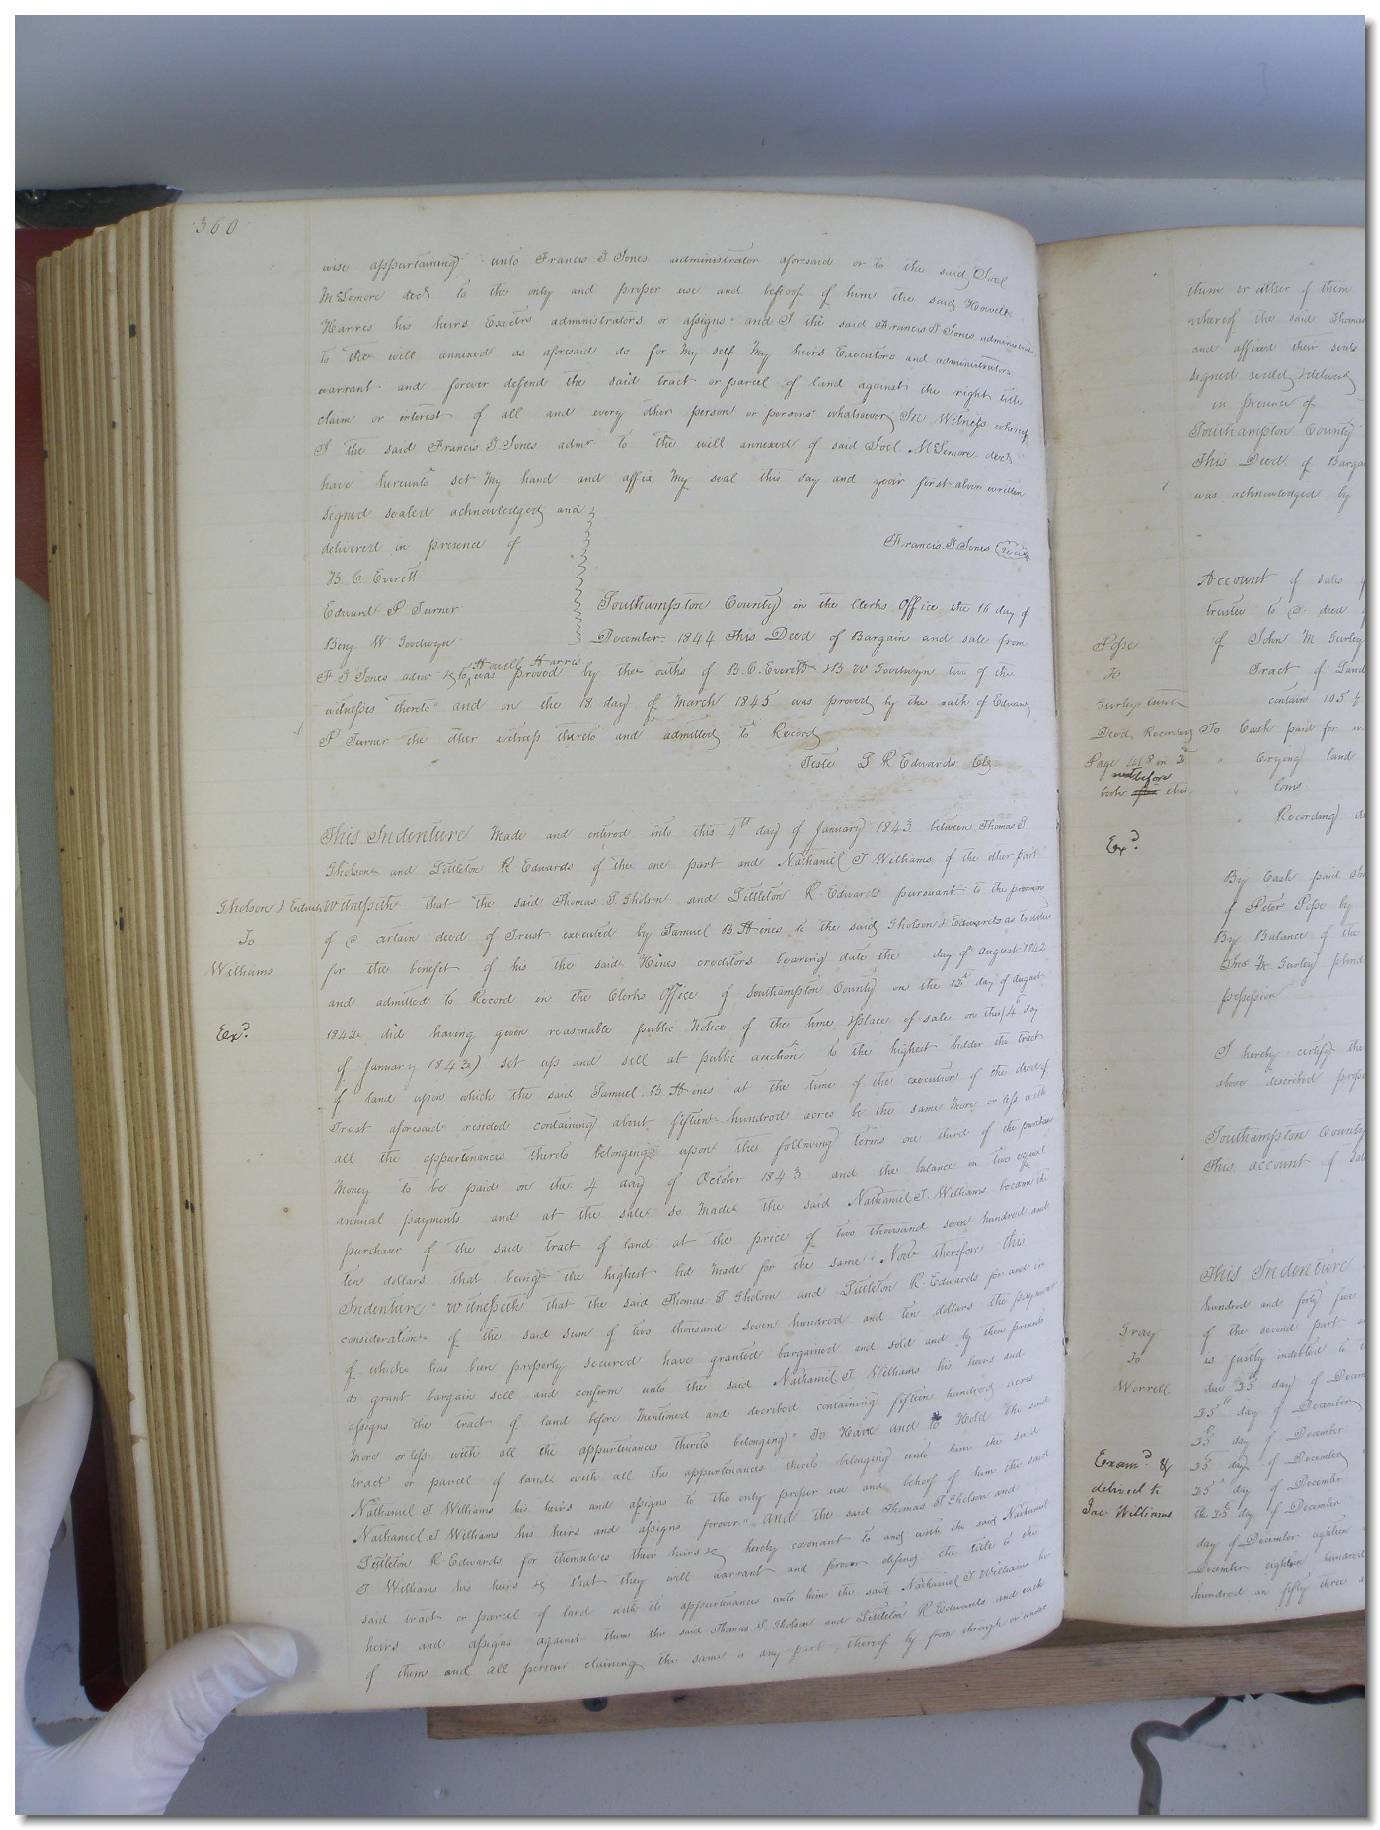 360
wise appertaining unto Francis T Jones administrator aforesaid or to the said Joel
McLemore decd to the only and proper use and behoof of him the said Howell
Harres his heirs Exectrs administrators or assigns and I the said Francis T Jones administrator
to the will annexed as aforesaid do for my self my heirs Executors and administrators
warrant and forever defend the said tract or parcel of land against the right title
claim or interest of all and every other person or persons whatsoever In Witness whereof
I the said Francis T Jones admr to the will annexed of said Joel McLemore decd
have hereunto set my hand and affix my seal this day and year first above written
Signed sealed acknowledged and
delivered in presence of
Francis T Jones Seal
B. C. Everett
Edward P Turner
Benj W Goodwyn
Southampton County in the Clerks Office the 16 day of
December 1844 This Deed of Bargain and sale from
F T Jones admr &c to Howell Harres was proved by the oaths of B. C. Everett & B W Goodwyn two of the
witnesses thereto and on the 18 day of March 1845 was proved by the oath of Edward
P Turner the other witness thereto and admitted to Record
Teste L R Edwards Clk
Gholson & Edwards
To
Williams
Exd
This Indenture Made and entered into this 4th day of January 1843 between Thomas S
Gholson and Littleton R Edwards of the one part and Nathaniel T Williams of the other part
Witnesseth that the said Thomas S Gholson and Littleton R Edwards pursuant to the provisions
of a certain deed of Trust executed by Samuel B Hines to the said Gholson & Edwards as trustees
for the benefit of his the said Hines creditors bearing date the day of August 1842
and admitted to Record in the Clerks Office of Southampton County on the day of August
1842 did having given reasonable public Notice of the time & place of sale on this (4 day
of January 1843) set up and sell at public auction to the highest bidder the tract
of land upon which the said Samuel B Hines at the time of the execution of the deed of
Trust aforesaid resided containing about fifteen hundred acres be the same more or less with
all the appurtenances thereto belonging upon the following terms one third of the purchase
Money to be paid on the 4 day of October 1843 and the balance in two equal
annual payments and at the sale so made the said Nathaniel T. Williams became the
purchaser of the said tract of land at the price of two thousand seven hundred and
ten dollars that being the highest bid made for the same Now therefore this
Indenture Witnesseth that the said Thomas S Gholson and Littleton R Edwards for and in
consideration of the said sum of two thousand seven hundred and ten dollars the payment
of which has been properly secured have granted bargained and sold and by these presents
do grant bargain sell and confirm unto the said Nathaniel T Williams his heirs and
assigns the tract of land before mentioned and decribed containing fifteen hundred acres
more or less with all the appurtenances thereto belonging To Have and to Hold the said
tract or parcel of land with all the appurtenances thereto belonging unto him the said
Nathaniel T Williams his heirs and assigns to the only proper use and behoof of him the said
Nathaniel T Williams his heirs and assigns forever and the said Thomas S Gholson and
Littleton R Edwards for themselves their heirs &c hereby covenant to and with the said Nathaniel
T Williams his heirs &c that they will warrant and forever defend the title to the
said tract or parcel of land with its appurtenances unto him the said Nathaniel T Williams his
heirs and assigns against them the said Thomas S. Gholson and Littleton R Edwards and each
of them and all persons claiming the same or any part thereof by from through or under
them or either of them
whereof the said Thomas
and affixed their seals
signed sealed & deliverd
in presence of
Southampton County
This Deed of Barga
was acknowledged by
Account of sales
trustee to a deed
of John M Gurley
Tract of Land
contain 105
To Cash paid for
Crying land
Recording
By Cash paid
of Peter Pope by
By Balance of the
Jno M Gurley
possession
I hereby certify tha
above described prope
Southampton County
This account of sal
Pope
To
Deed Recording
Page 418 in
next before
book this
Exd
This Indenture
hundred and forty five
of the second part
is justly indebted to
due 25 day of Decem
25th day of December
25 day of December
25 day of December
25 day of December
the 25 day of December
day of December eighteen
December eighteen hundred
hundred an fifty three
Gray
To
Worrell
Examd &
delivered to
Jac Williams